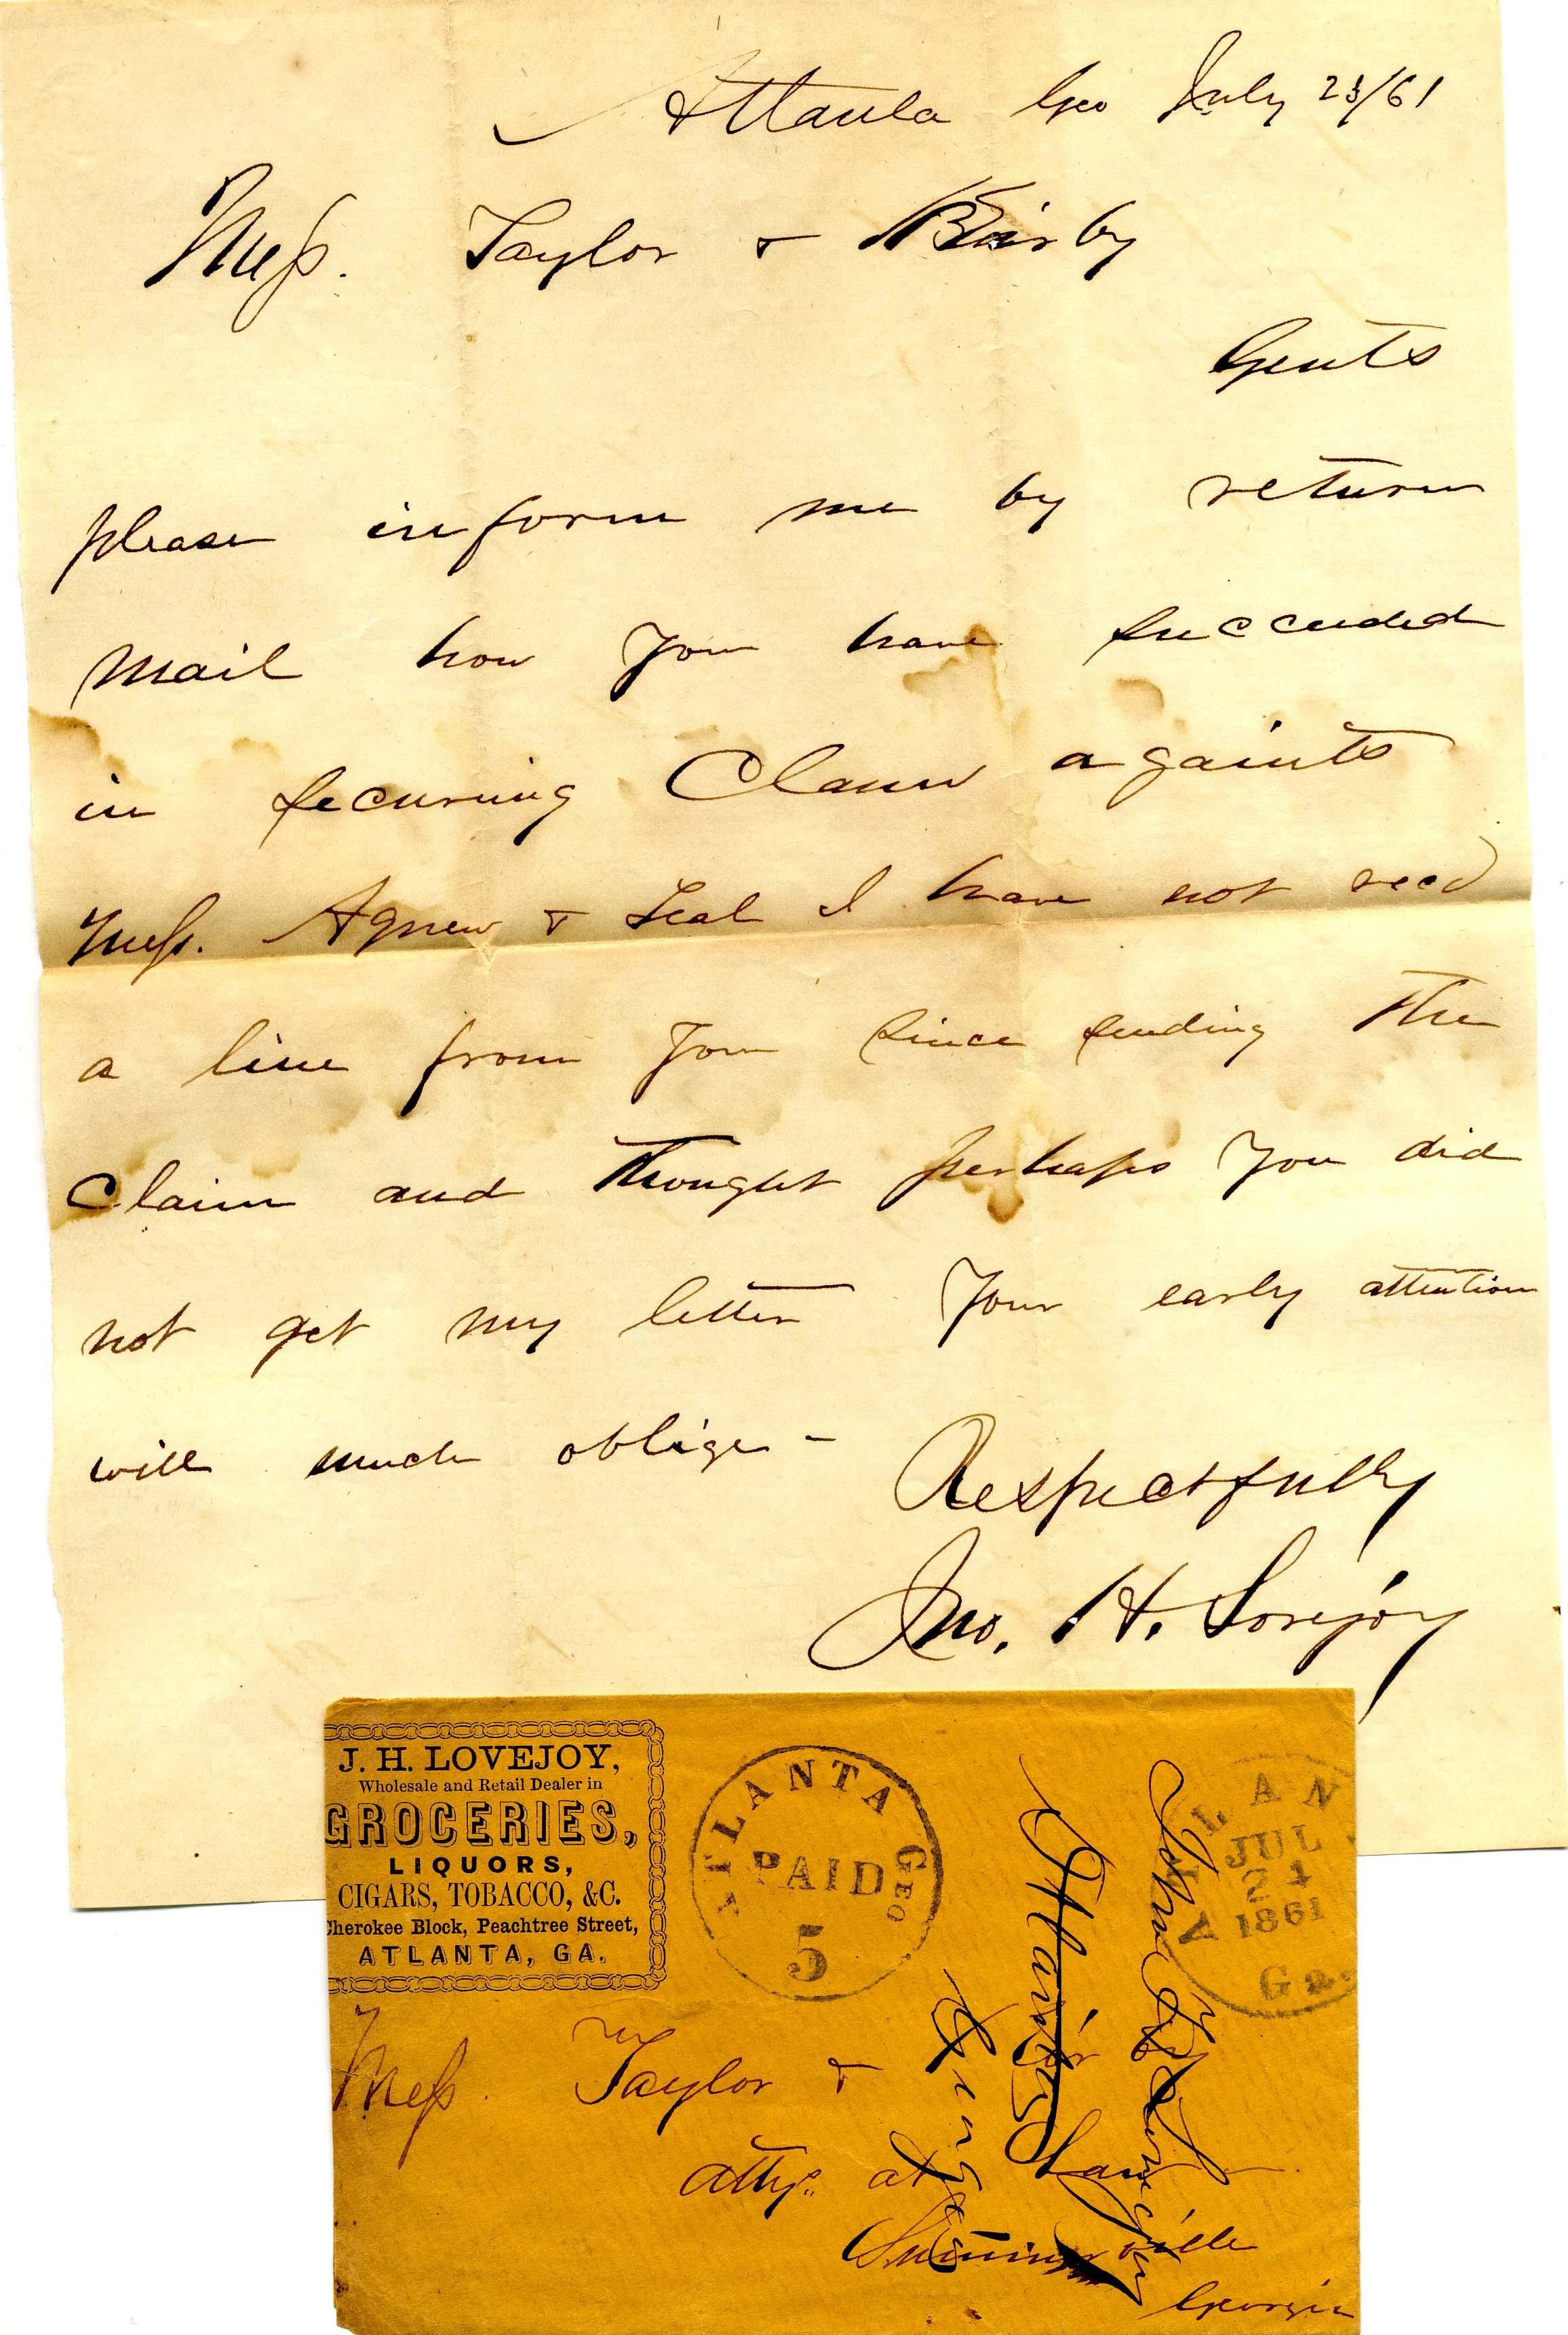 Atlanta Geo July 23/61
Mess. Taylor &
Gents
please inform me by return
mail how you have succeeded
in securing Claim againts
Mess. Agnew & Teal I have not recd
a line from you since sending the
Claim and thought perhaps you did
not get my letter Your early attention
will much oblige -
Respectfully
Jno. H. Lovejoy
J. H. LOVEJOY,
Wholesale and Retail Dealer in
GROCERIES,
LIQUORS,
CIGARS, TOBACCO, &C.
Cherokee Block, Peachtree Street,
ATLANTA, GA.
ATLANTA GEO
PAID
5
ATLAN
JUL 24
1861
Ga.
Mess. Taylor &
attys. at Law
Summerville
Georgia
John